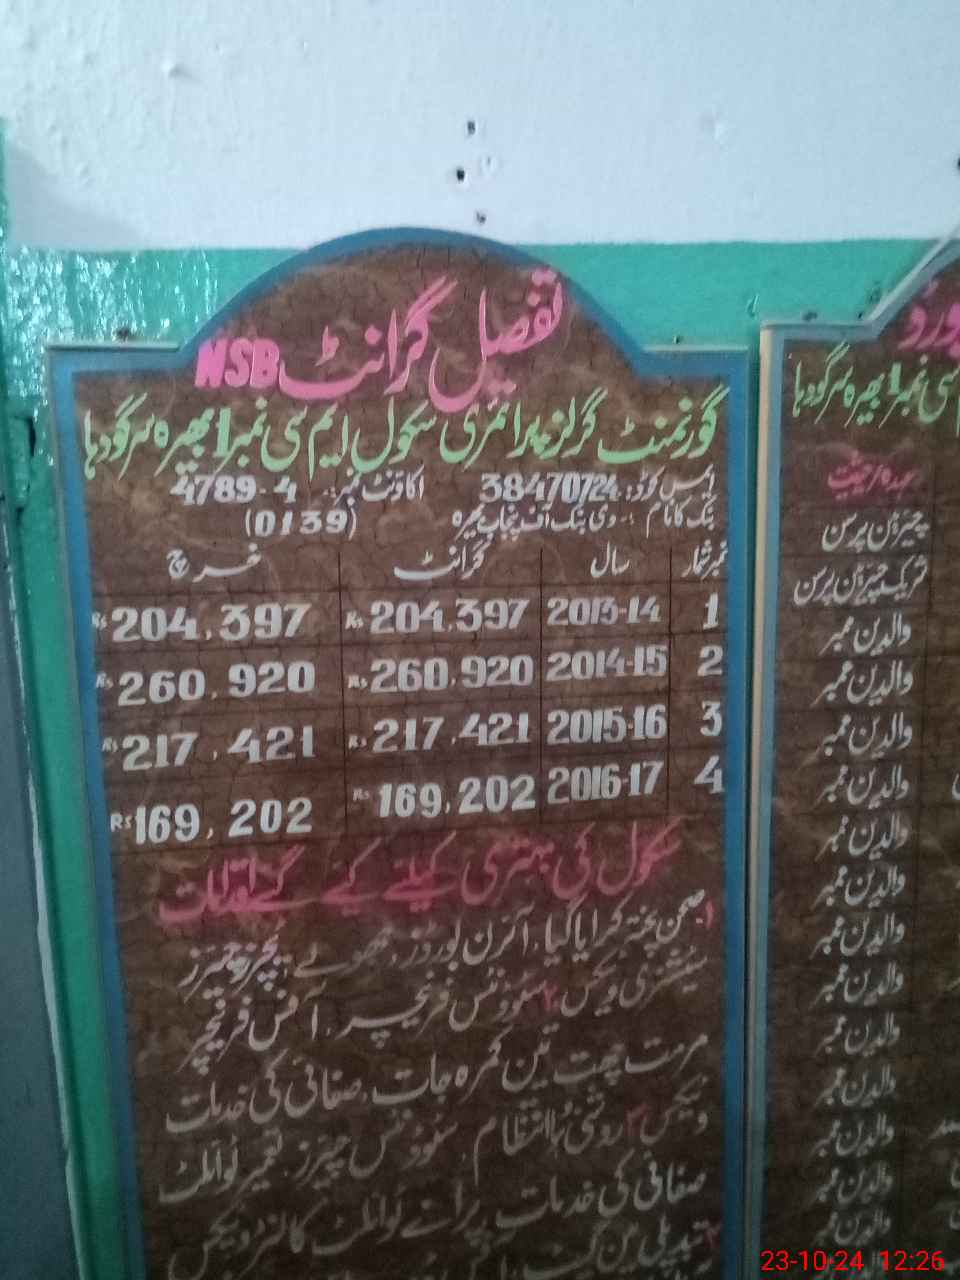 تفصیل گرانٹ NSB
گورنمنٹ گرلز پرائمری سکول ایم سی نمبر 1 بھیرہ سرگودہا
ایمس کوڈ: 38470724 اکاونٹ نمبر:- 4789-4
بنک کا نام :- دی بنک آف پنجاب بھیرہ (0139)
نمبر شمار سال گرانٹ خرچ
1 2013-14 Rs 204,397 Rs 204,397
2 2014-15 Rs 260,920 Rs 260,920
3 2015-16 Rs 217,421 Rs 217,421
4 2016-17 Rs 169,202 Rs 169,202
سکول کی بہتری کیلئے کیے گئے اقدامات
۱۔ صحن پختہ کرایا گیا، آئرن بورڈز، جھولے، ٹیچرز چیئرز
سٹیشنری ویکس ۲ سٹوڈنٹس فرنیچر، آفس فرنیچر
مرمت چھت تین کمرہ جات، صفائی کی خدمات
ویکس ۳ روشنی کا انتظام، سٹوڈنٹس چیئرز، تعمیر ٹوائلٹ
صفائی کی خدمات، پرانے ٹوائلٹ کا لنر ویکس
۴ تبدیلی مین گیٹ
نمبر 1 بھیرہ سرگودہا
عہدہ/حیثیت
چیئرمین پرسن
شریک چیئرمین پرسن
والدین ممبر
والدین ممبر
والدین ممبر
والدین ممبر
والدین ممبر
والدین ممبر
والدین ممبر
والدین ممبر
والدین ممبر
والدین ممبر
والدین ممبر
والدین ممبر
والدین ممبر
23-10-24 12:26